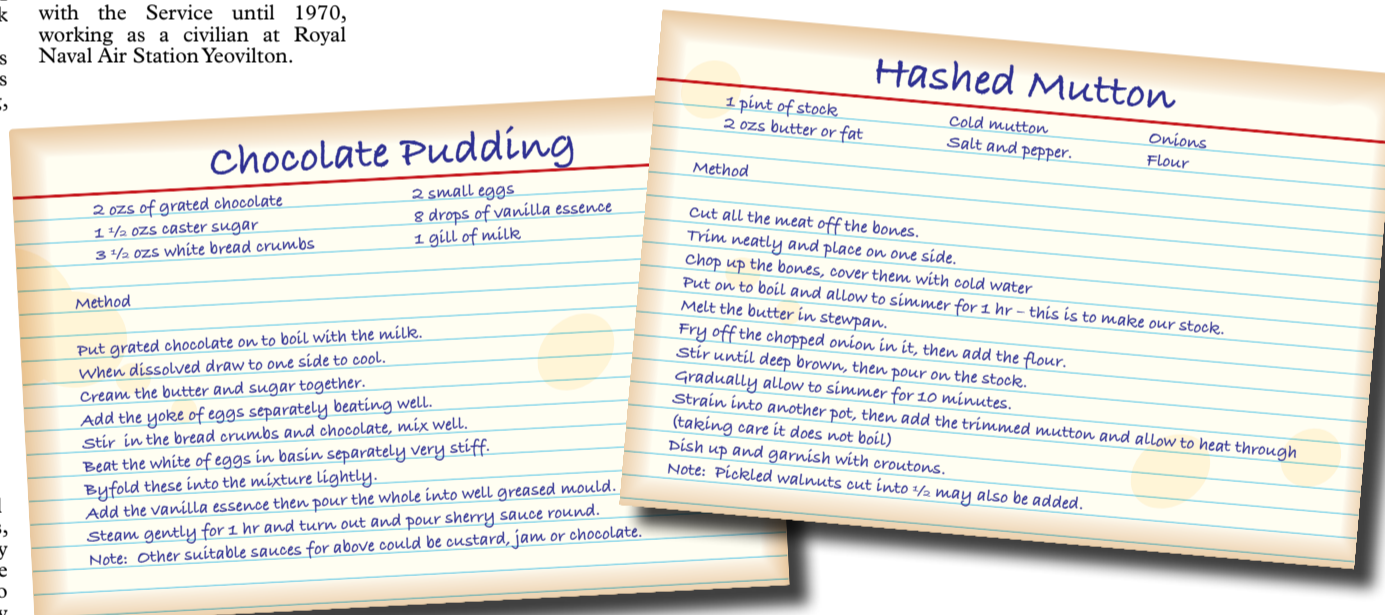 with the Service until 1970,
working as a civilian at Royal
Naval Air Station Yeovilton.
Chocolate Pudding
2 ozs of grated chocolate
1 1/2 ozs caster sugar
3 1/2 ozs white bread crumbs
2 small eggs
8 drops of vanilla essence
1 gill of milk
Method
Put grated chocolate on to boil with the milk.
When dissolved draw to one side to cool.
Cream the butter and sugar together.
Add the yoke of eggs separately beating well.
Stir in the bread crumbs and chocolate, mix well.
Beat the white of eggs in basin separately very stiff.
Byfold these into the mixture lightly.
Add the vanilla essence then pour the whole into well greased mould.
Steam gently for 1 hr and turn out and pour sherry sauce round.
Note: Other suitable sauces for above could be custard, jam or chocolate.
Hashed Mutton
1 pint of stock
2 ozs butter or fat
Cold mutton
Salt and pepper.
Onions
Flour
Method
Cut all the meat off the bones.
Trim neatly and place on one side.
Chop up the bones, cover them with cold water
Put on to boil and allow to simmer for 1 hr – this is to make our stock.
Melt the butter in stewpan.
Fry off the chopped onion in it, then add the flour.
Stir until deep brown, then pour on the stock.
Gradually allow to simmer for 10 minutes.
Strain into another pot, then add the trimmed mutton and allow to heat through
(taking care it does not boil)
Dish up and garnish with croutons.
Note: Pickled walnuts cut into 1/2 may also be added.